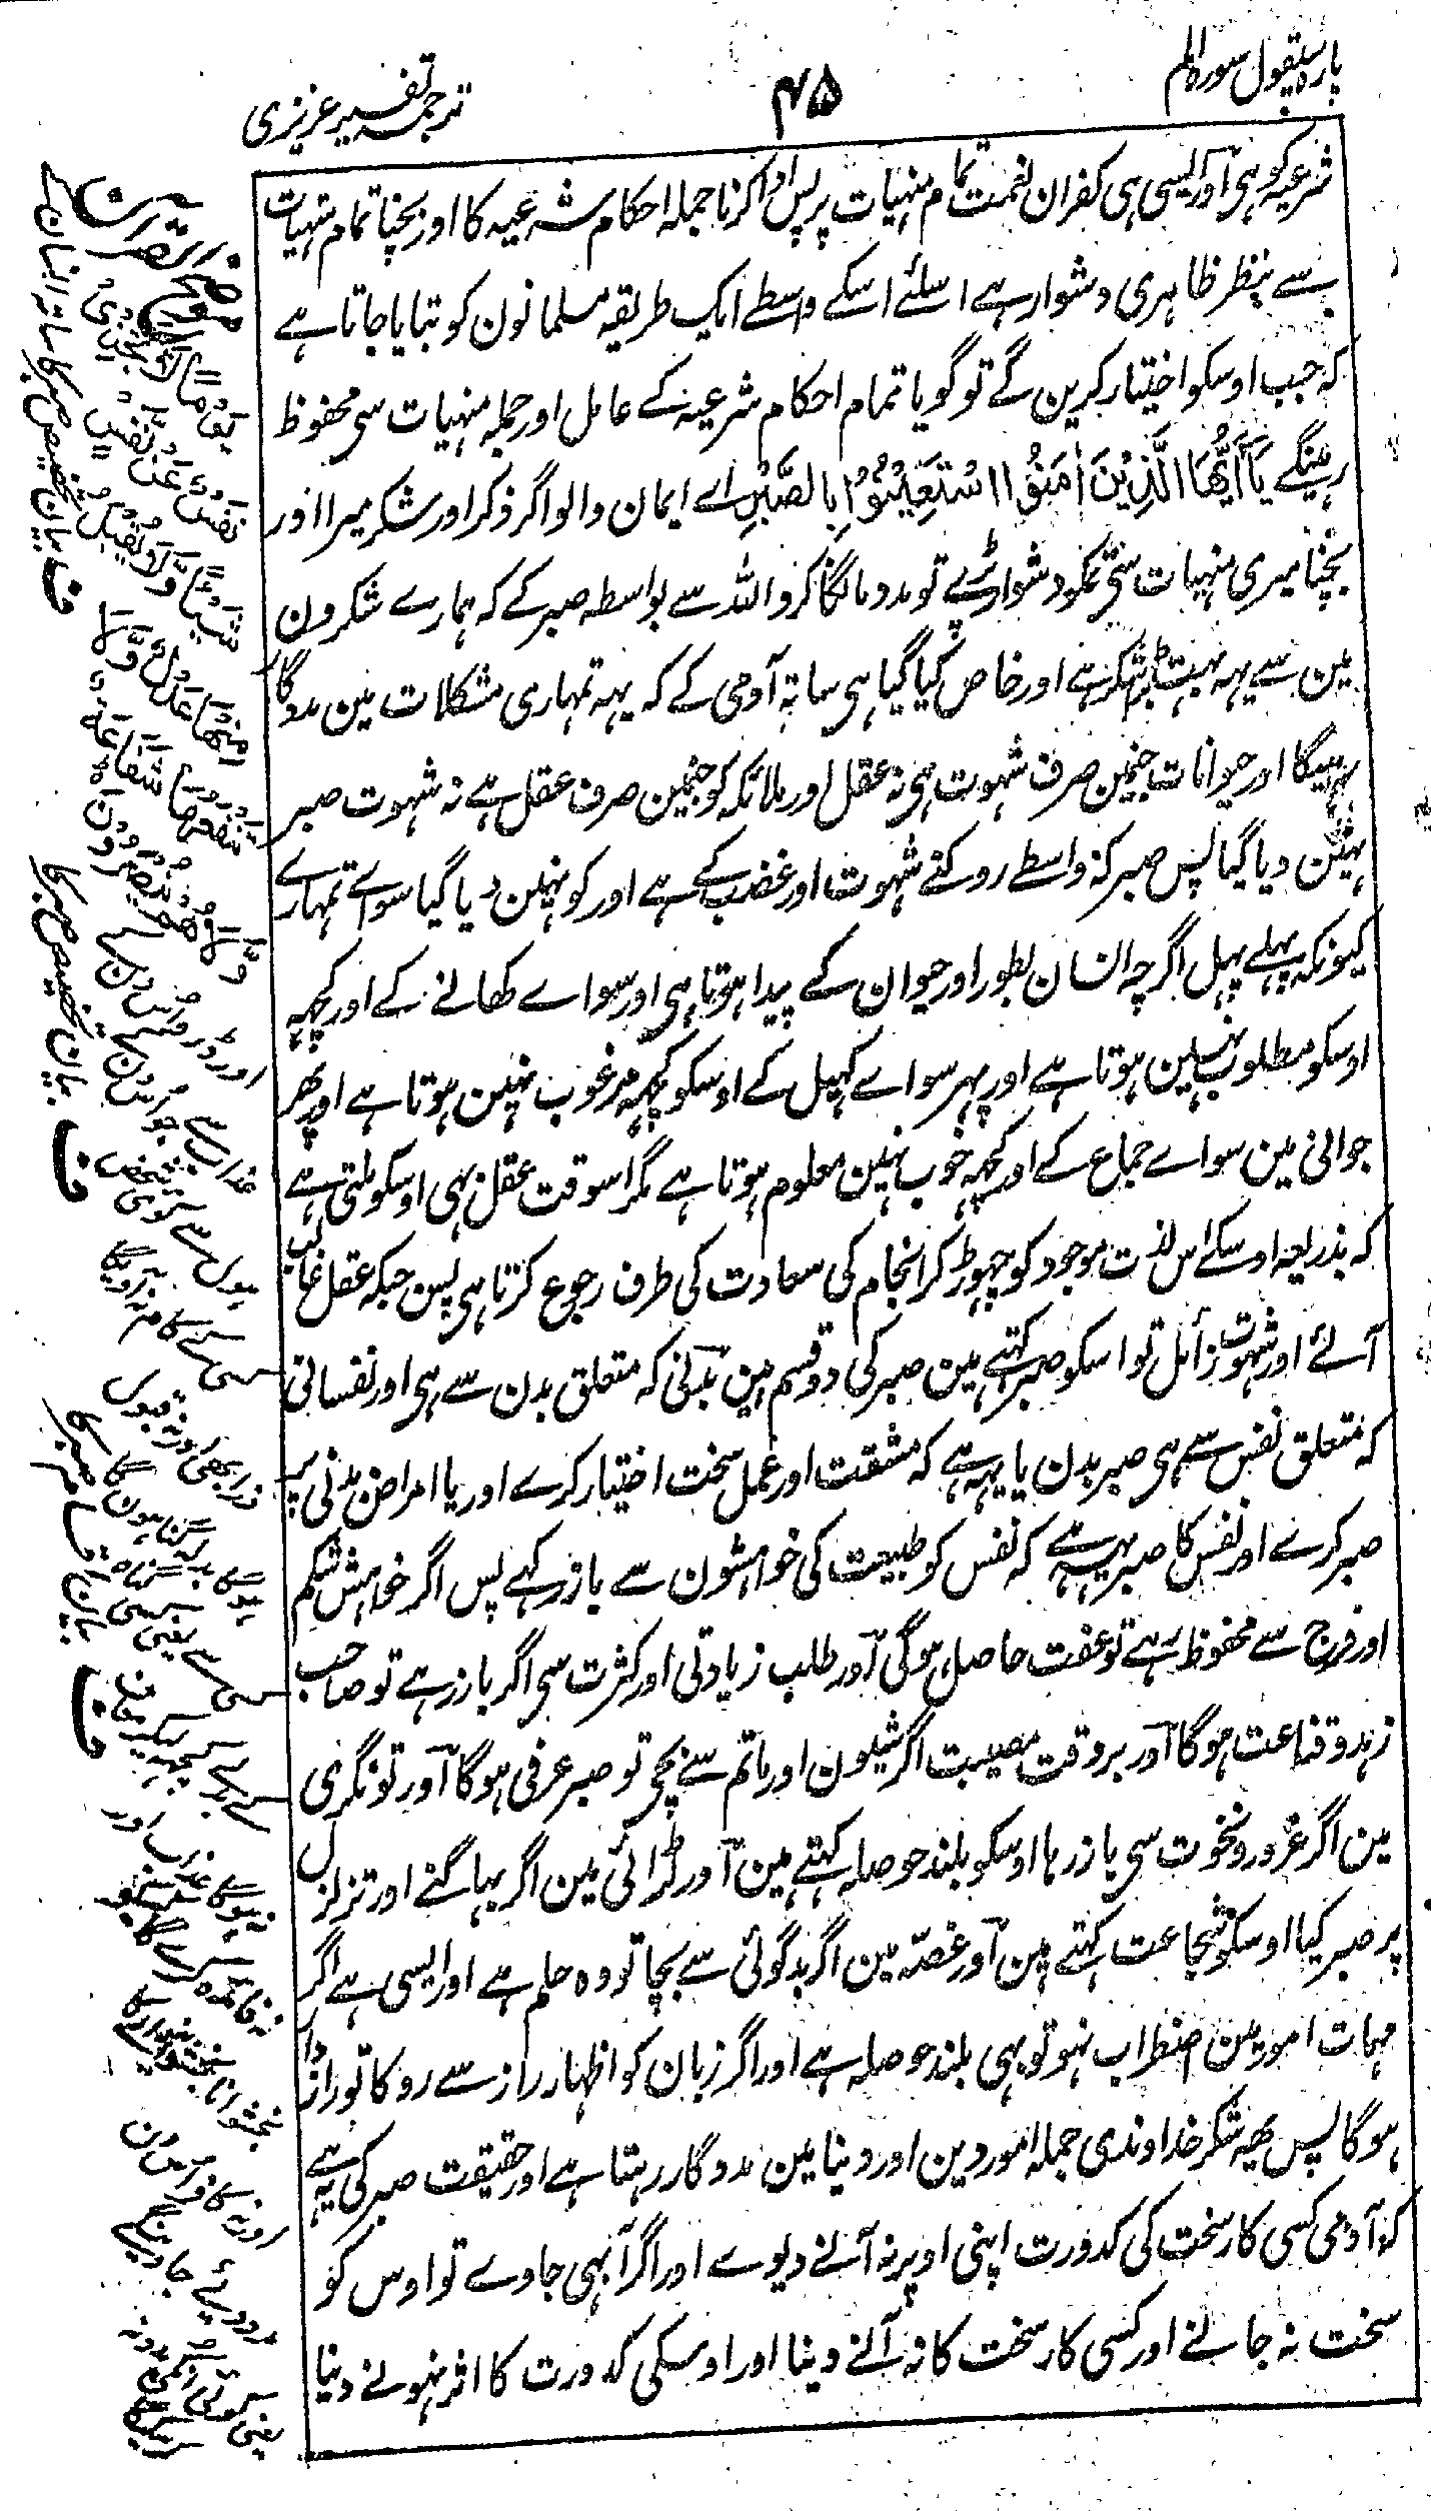 پارہ سیقول سورہ الم
۴۵
ترجمہ تفسیر عزیزی
شرعیہ کو ہی اور ایسی ہی کفران نعمت تمام منہیات پر پس ادا کرنا جملہ احکام شرعیہ کا اور بچنا تمام منہیات
سے بنظر ظاہری دشوار ہے اسلئے اسکے واسطے ایک طریقہ مسلمانون کو بتایا جاتا ہے
کہ جب اوسکو اختیار کرین گے تو گویا تمام احکام شرعیہ کے عامل اور جملہ منہیات سی محفوظ
رہینگے یَا أَیُّهَا الَّذِیْنَ اٰمَنُوا اسْتَعِیْنُوْا بِالصَّبْرِ اے ایمان والو اگر ذکر اور شکر میرا اور
بچنا میری منہیات سی تمکو دشوار پڑے تو مدد مانگا کرو اللہ سے بواسطہ صبر کے کہ ہمارے شکرون
مین سے یہہ بہت بڑا شکر ہے اور خاص کیا گیا ہی ساتہ آدمی کے کہ یہہ تمہاری مشکلات مین مددگار
رہیگا اور حیوانات جنمین صرف شہوت ہی نہ عقل اور ملائکہ کو جنمین صرف عقل ہے نہ شہوت صبر
نہین دیا گیا پس صبر کہ واسطے روکنے شہوت اور غضب کے ہے اور کو نہین دیا گیا سواے تمہارے
کیونکہ پہلے پہل اگرچہ انسان بطور اور حیوان کے پیدا ہوتا ہی اور سواے کھانے کے اور کچہہ
اوسکو مطلوب نہین ہوتا ہے اور پہر سواے کہیل کے اوسکو کچہہ مرغوب نہین ہوتا ہے اور پھر
جوانی مین سواے جماع کے اور کچہہ خوب نہین معلوم ہوتا ہے مگر اسوقت عقل بہی اوسکو ملتی ہے
کہ بذریعہ اوسکے اس لذت موجود کو چہوڑ کر انجام کی سعادت کی طرف رجوع کرتا ہی پس جبکہ عقل غالب
آئے اور شہوت زائل تو اسکو صبر کہتے ہین صبر کی دو قسم ہین بدنی کہ متعلق بدن سے ہی اور نفسانی
کہ متعلق نفس سے ہی صبر بدن یا یہہ ہے کہ مشقت اور عمل سخت اختیار کرے اور یا امراض بدنی پر
صبر کرے اور نفس کا صبر یہہ ہے کہ نفس کو طبیعت کی خواہشون سے باز رکہے پس اگر خواہش شکم
اور فرج سے محفوظ رہے تو عفت حاصل ہوگی اور طلب زیادتی اور کثرت سی اگر باز رہے تو صاحب
زہد و قناعت ہوگا اور بروقت مصیبت اگر شیون اور ماتم سے بچی تو صبر عرفی ہوگا اور تونگری
مین اگر غرور و نخوت سی باز رہا اوسکو بلند حوصلہ کہتے ہین اور لڑائی مین اگر بہاگنے اور تزلزل
پر صبر کیا اوسکو شجاعت کہتے ہین اور غصّہ مین اگر بدگوئی سے بچا تو وہ حلم ہے اور ایسی ہے اگر
مہمات امور مین اضطراب نہو تو بہی بلند حوصلہ ہے اور اگر زبان کو اظہار راز سے روکا تو رازدار
ہوگا پس یہہ شکر خداوندی جملہ امور دین اور دنیا مین مددگار رہتا ہے اور حقیقت صبر کی یہ ہے
کہ آدمی کسی کار سخت کی کدورت اپنی اوپر نہ آنے دیوے اور اگر آبہی جاوے تو اوس کو
سخت نہ جانے اور کسی کار سخت کا نہ آنے دینا اور اوسکی کدورت کا اثر نہونے دینا
موضح القرآن
یَوْمًا لَّا تَجْزِیْ
نَفْسٌ عَنْ نَّفْسٍ
شَیْئًا وَّلَا یُقْبَلُ
مِنْهَا عَدْلٌ وَّلَا
تَنْفَعُهَا شَفَاعَةٌ
وَّلَا هُمْ یُنْصَرُوْنَ
اور ڈرو اوس دن کے
عذاب سے جس دن
کوئی شخص
کسی کے کام نہ آویگا
ذرا بہی اور نہ قبول
ہوگا بدلہ گناہون کا
یعنی کسی گناہ
کے بدلے کچہہ لیکر
نہ فائدہ کرے گا
یعنی کوئی اونکی مدد نہ
کریگا
ف بیان تخصیص صبر کا ساتہ انسان کے
ف بیان تخصیص صبر کا
ف بیان اقسام صبر کا